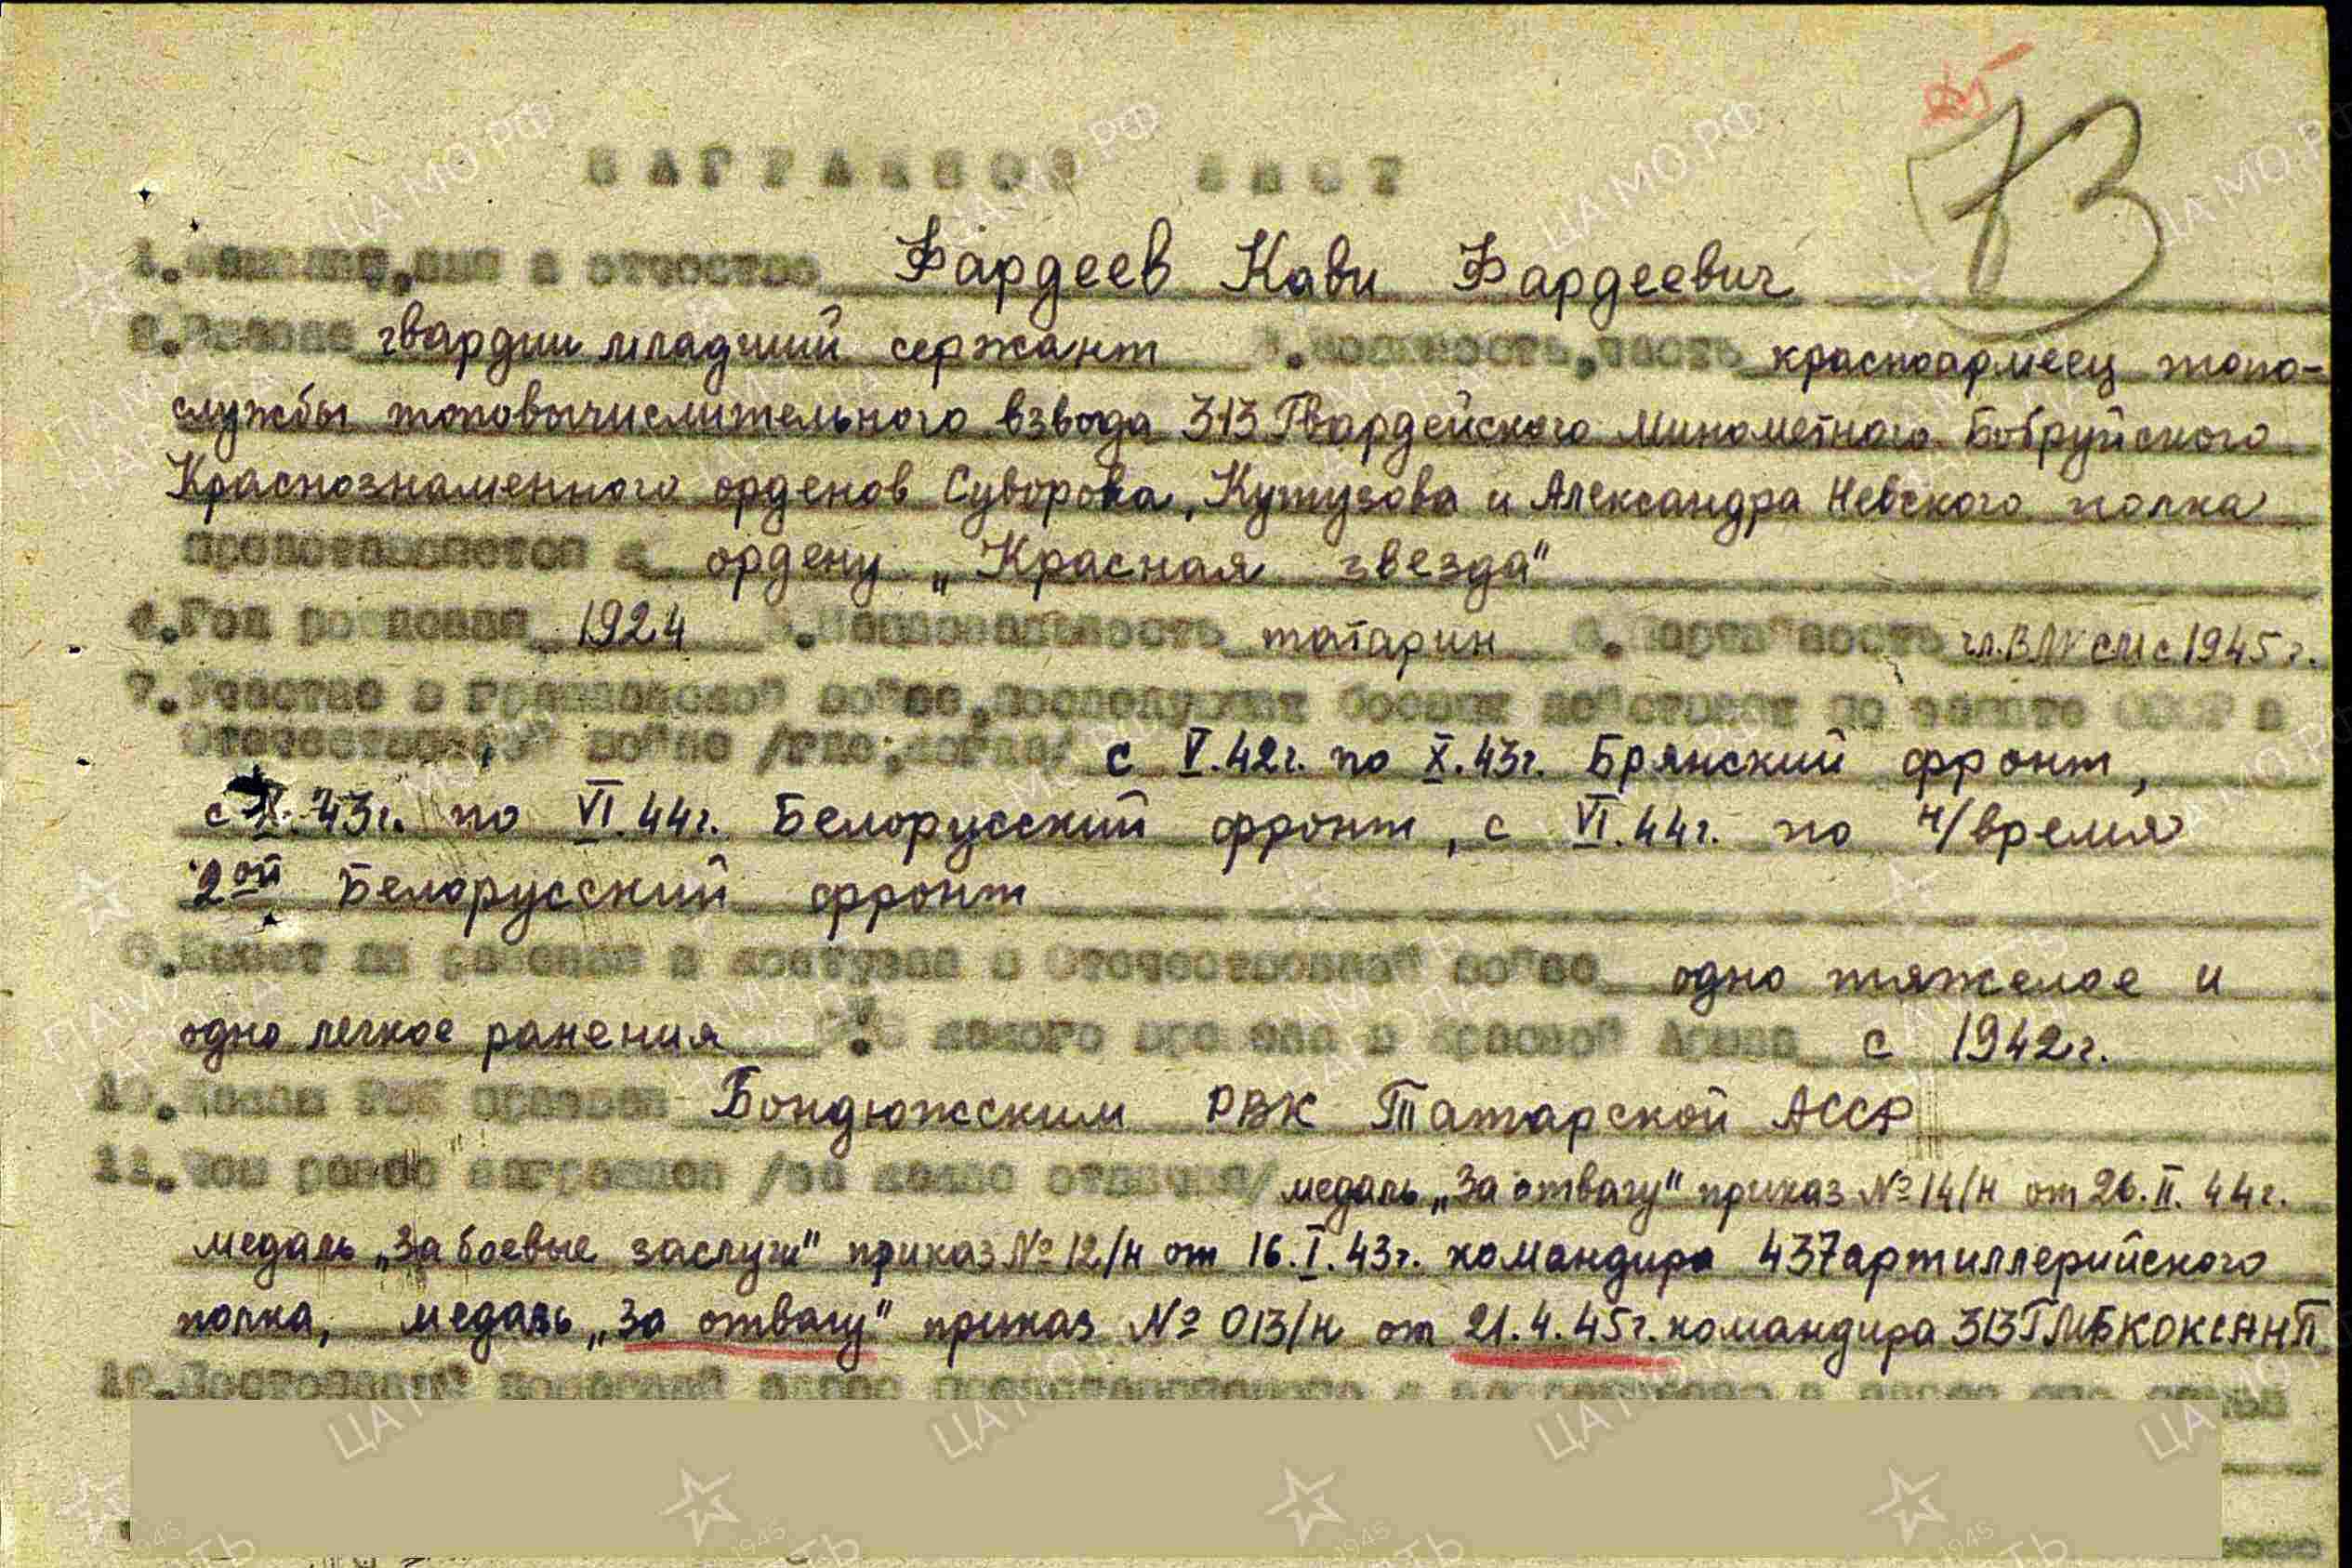 73
НАГРАДНОЙ ЛИСТ
1. Фамилия, имя и отчество Фардеев Кави Фардеевич
2. Звание гвардии младший сержант 3. Должность, часть красноармеец топо-
службы топовычислительного взвода 313 Гвардейского Минометного Бобруйского
Краснознаменного орденов Суворова, Кутузова и Александра Невского полка
представляется к ордену „Красная звезда"
4. Год рождения 1924 5. Национальность татарин 6. Партийность чл. ВЛКСМ с 1945 г.
7. Участие в гражданской войне, последующих боевых действиях по защите СССР и
Отечественной войне /где, когда/ с V.42г. по X.43г. Брянский фронт,
с X.43г. по VI.44г. Белорусский фронт, с VI.44г. по н/время
2ой Белорусский фронт
8. Имеет ли ранения и контузии в Отечественной войне одно тяжелое и
одно легкое ранения 9. С какого времени в Красной Армии с 1942г.
10. Каким РВК призван Бондюжским РВК Татарской АССР
11. Чем ранее награжден /за какие отличия/ медаль „За отвагу" приказ № 14/н от 26.II.44г.
медаль „За боевые заслуги" приказ № 12/н от 16.I.43г. командира 437 артиллерийского
полка, медаль „За отвагу" приказ № 013/н от 21.4.45г. командира 313 ГМБКОКСАНП
12. Постоянный домашний адрес представляемого к награждению и адрес его семьи